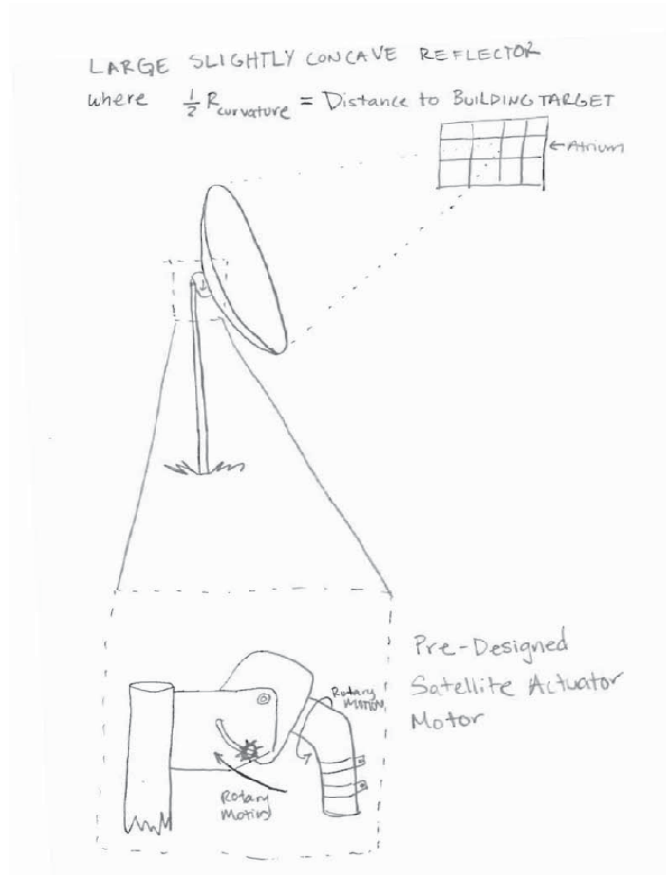 LARGE SLIGHTLY CONCAVE REFLECTOR
where 1/2 Rcurvature = Distance to BUILDING TARGET
←Atrium
Pre-Designed
Satellite Actuator
Motor
Rotary
MOTION
Rotary
Motion